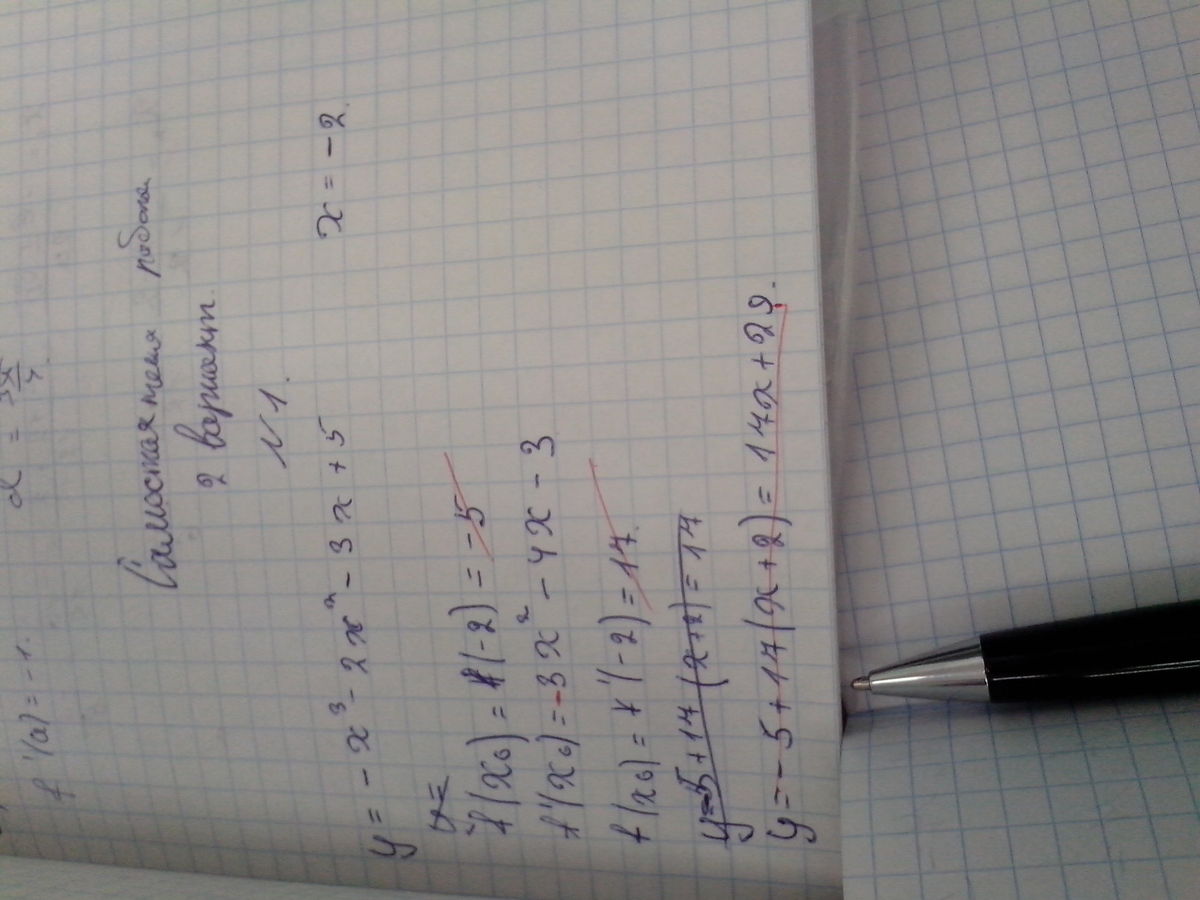 f'(a) = -1.
α = 3π/4
Самостоятельная работа.
2 вариант.
N1.
y = -x³ - 2x² - 3x + 5    x = -2.
y =
f(x₀) = f(-2) = -5
f'(x₀) = -3x² - 4x - 3
f(x₀) = f'(-2) = 17.
y = 5 + 17(x+2) = 17
y = -5 + 17(x+2) = 17x + 29.